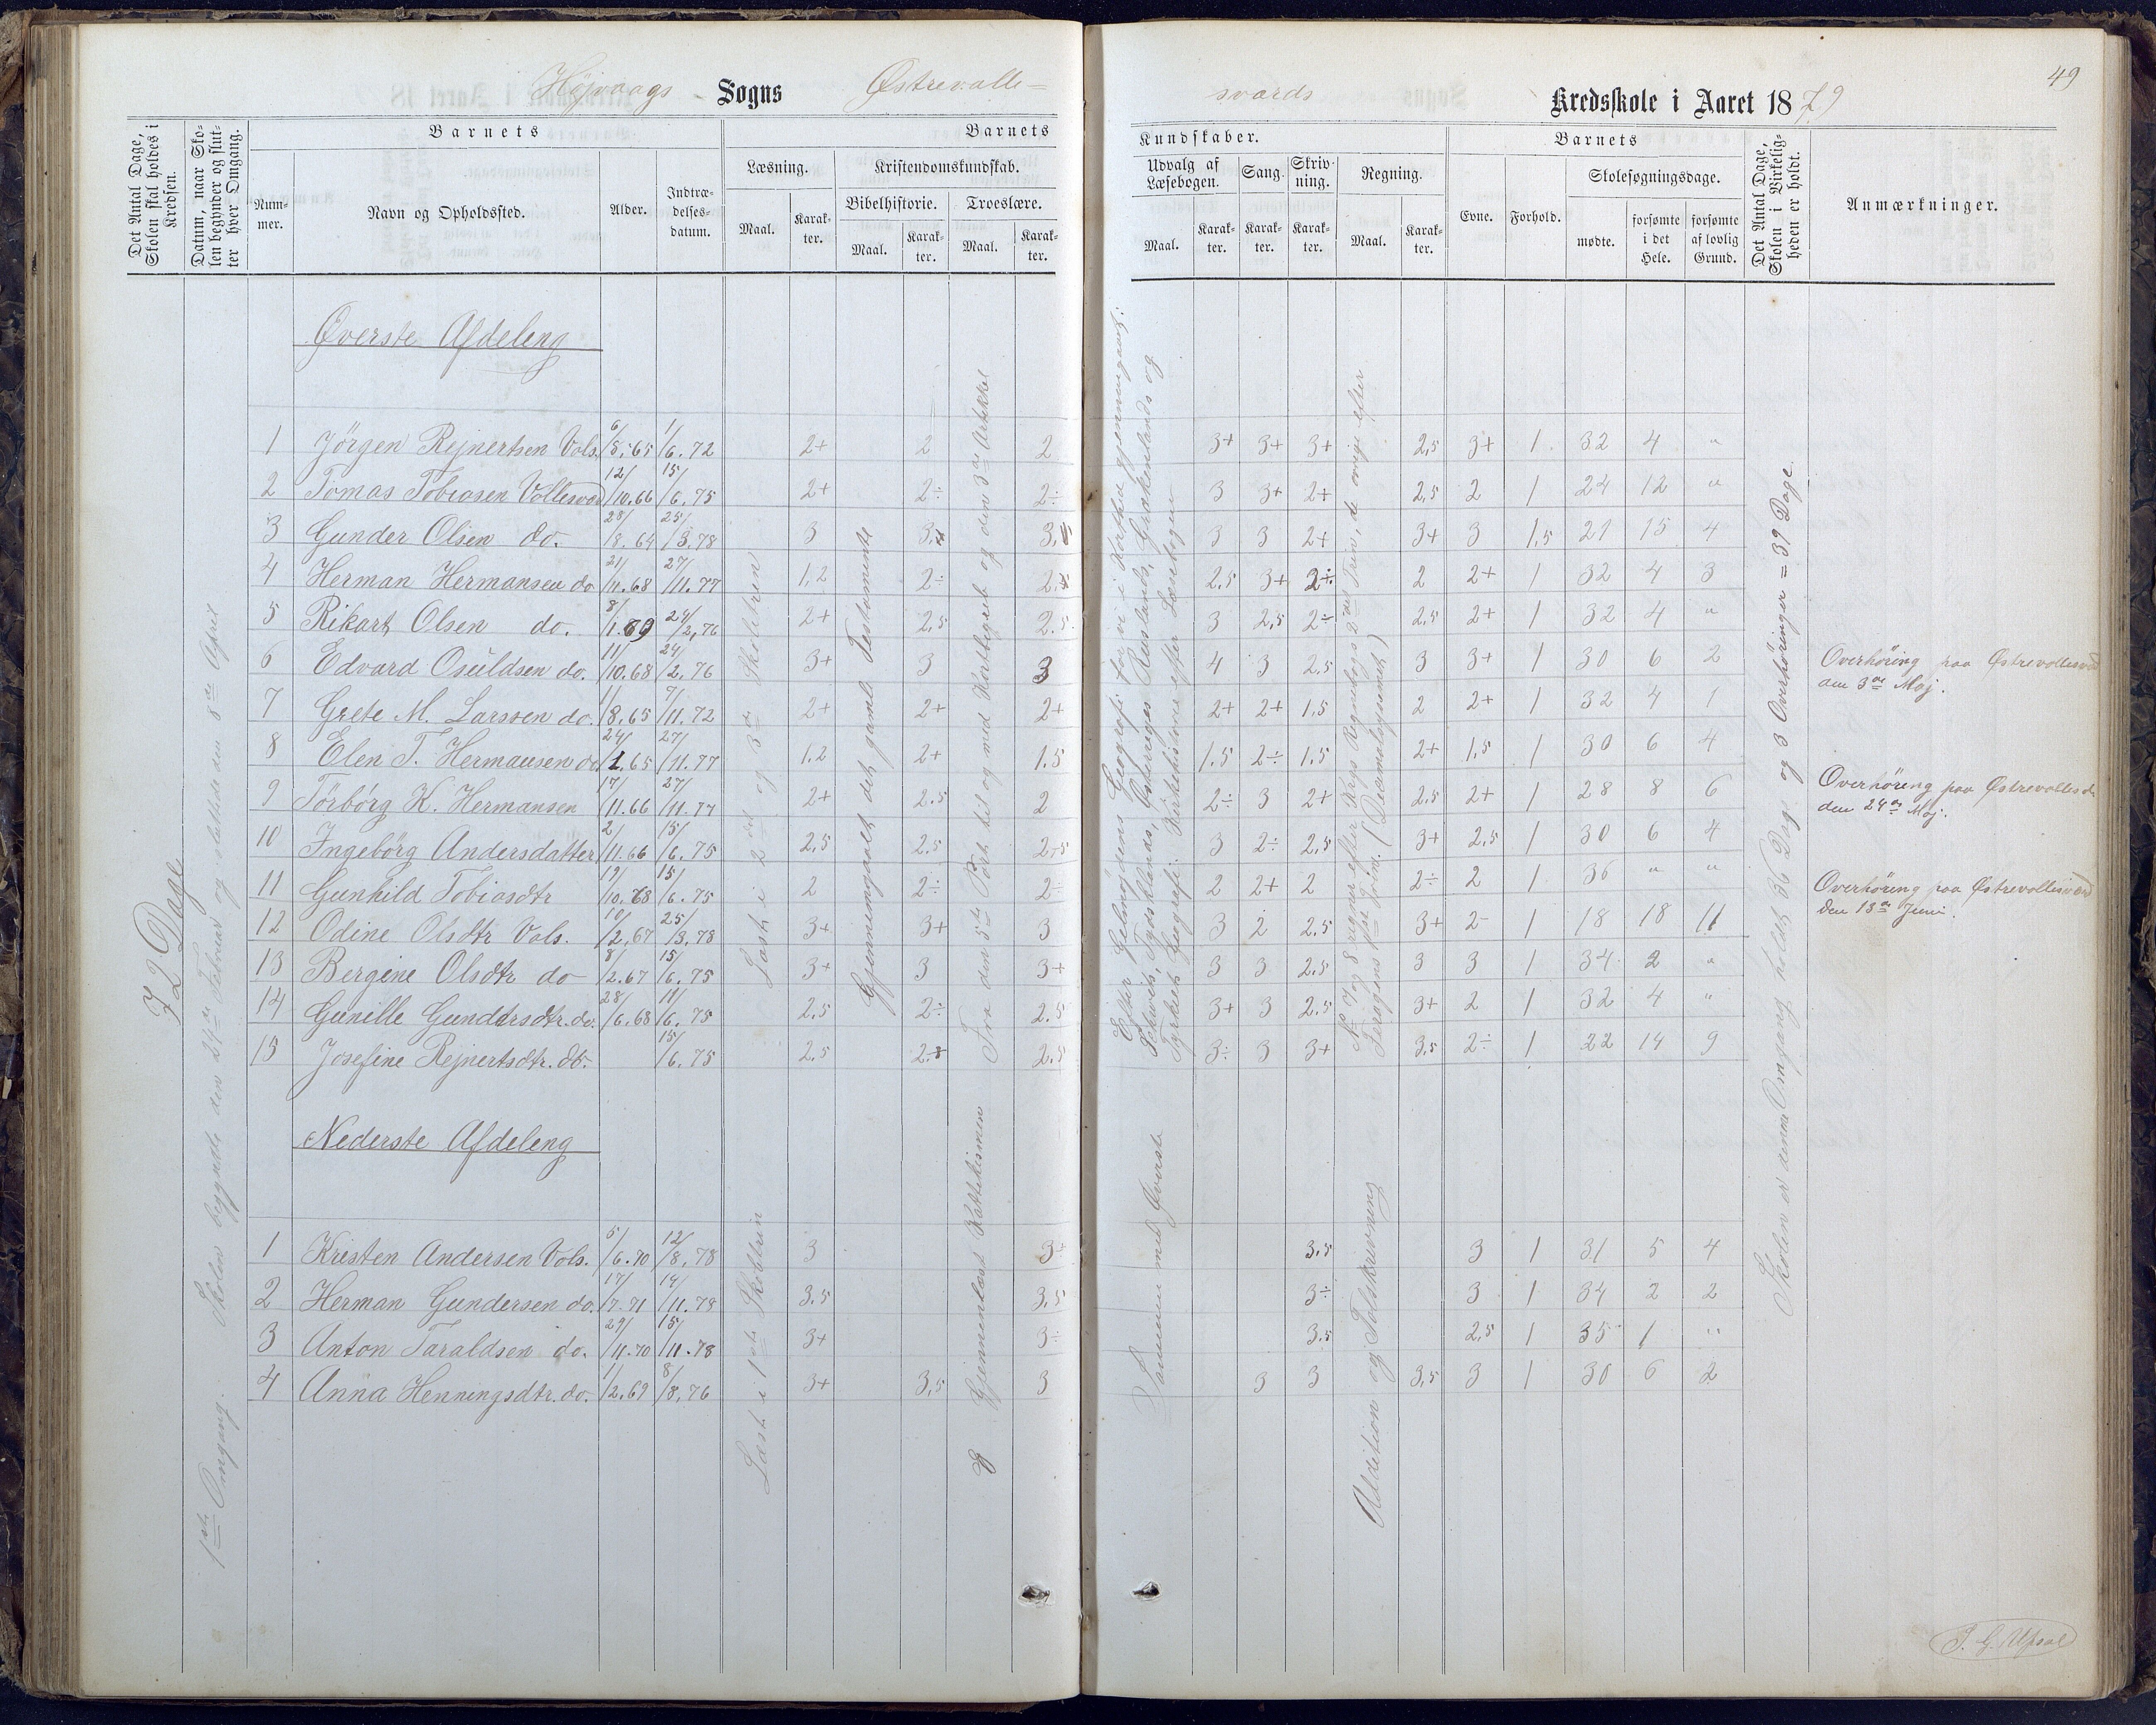 Højvaags Sogns Østrevalle=
sværds Kredsskole i Aaret 1879
49
Det Antal Dage, Skolen skal holdes i Kredsen.
Datum, naar Skolen begynder og slutter hver Omgang.
Barnets
Nummer.
Navn og Opholdssted.
Alder.
Indtrædelsesdatum.
Barnets
Læsning.
Maal.
Karakter.
Kristendomskundskab.
Bibelhistorie.
Maal.
Karakter.
Troeslære.
Maal.
Karakter.
Kundskaber.
Udvalg af Læsebogen.
Maal.
Karakter.
Sang.
Karakter.
Skrivning.
Karakter.
Regning.
Maal.
Karakter.
Barnets
Evne.
Forhold.
Skolesøgningsdage.
mødte.
forsømte i det Hele.
forsømte af lovlig Grund.
Det Antal Dage, Skolen i Virkeligheden er holdt.
Anmærkninger.
72 Dage
1ste Omgang. Skolen begyndte den 24de Februar og sluttede den 8de April
Øverste Afdeling
1 Jörgen Rejnertsen Vols. 6/8.65 1/6.72 2+ 2 2 3+ 3+ 3+ 2,5 3+ 1 32 4 "
2 Tomas Tobiasen Vollesværd 12/10.66 15/6.75 2+ 2÷ 2÷ 3 3+ 2+ 2,5 2 1 24 12 "
3 Gunder Olsen do. 28/8.64 25/3.78 3 3 3 3 3 2+ 3+ 3 1,5 21 15 4
4 Herman Hermansen do 21/11.68 27/11.77 1,2 2÷ 2 2,5 3+ 2÷ 2 2+ 1 32 4 3
5 Rikart Olsen do. 8/1.69 24/2,76 2+ 2,5 2.5 3 2,5 2÷ 2,5 2+ 1 32 4 "
6 Edvard Osuldsen do. 11/10.68 24/2.76 3+ 3 3 4 3 2.5 3 3+ 1 30 6 2
7 Grete M. Larssen do. 1/8.65 7/11.72 2+ 2+ 2+ 2+ 2+ 1.5 2 2+ 1 32 4 1
8 Elen T. Hermansen do 24/1.65 27/11.77 1.2 2+ 1.5 1.5 2÷ 1,5 2+ 1,5 1 30 6 4
9 Törbörg K. Hermansen 17/11.66 27/11.77 2+ 2.5 2 2÷ 3 2+ 2.5 2+ 1 28 8 6
10 Ingebörg Andersdatter 2/11.66 15/6.75 2,5 2.5 2,5 3 2÷ 2,5 3+ 2,5 1 30 6 4
11 Gunhild Tobiasdtr 19/10.68 15/6.75 2 2÷ 2÷ 2 2+ 2 2÷ 2 1 36 " "
12 Odine Olsdtr Vols. 10/2.67 25/3.78 3+ 3+ 3 3 2 2.5 3+ 2- 1 18 18 11
13 Bergine Olsdtr do 8/2.67 15/6.75 3+ 3 3+ 3 3 2.5 3 3 1 34 2 "
14 Gunille Gundersdtr. do. 28/6.68 11/6.75 2,5 2÷ 2.5 3+ 3 2.5 3+ 2 1 32 4 "
15 Josefine Rejnertsdtr. do. 15/6.75 2,5 2÷ 2.5 3÷ 3 3+ 3,5 2÷ 1 22 14 9
Læst i 2det og 3de Skoletrin
Gjennemgaaet det gamle Testamente
Fra den 5te Part til og med Kortbegreb og den 3de Artikkel
Efter Gelmuydens Geografi have vi i Korthed gjennemgaaet:
Schweits, Tysklands, Østerriges, Ruslands, Grækenlands og
Tyrkiets Geografi. Kirkehistorie efter Læsebogen
No 7 og 8 regner efter Krogs Regnebogs 2det Trin, de øvrige efter
Foragens 1ste Trin. (Decimalregnemed.)
Skolen er denne Omgang holdt 36 Dage og 3 Overhöringer = 39 Dage.
Overhöring paa Østrevollesværd
den 3de Maj.
Overhöring paa Østrevollesv.
den 24de Maj.
Overhöring paa Østrevollesværd
den 13de Juni.
Nederste Afdeling
1 Kristen Andersen Vols. 5/6.70 12/8.78 3 3÷ 3.5 3 1 31 5 4
2 Herman Gundersen do. 17/7.71 14/11.78 3.5 3,5 3÷ 3 1 34 2 2
3 Anton Taraldsen do. 29/11.70 15/11.78 3+ 3÷ 3.5 2,5 1 35 1 "
4 Anna Henningsdtr. do. 1/2.69 8/8.76 3+ 3,5 3 3 3 3,5 3 1 30 6 2
Læst i 1ste Skoletrin
Gjennemlæst Kattekismen
Sammen med Øverste
Addition og Talskrivning
T. G. Upsal